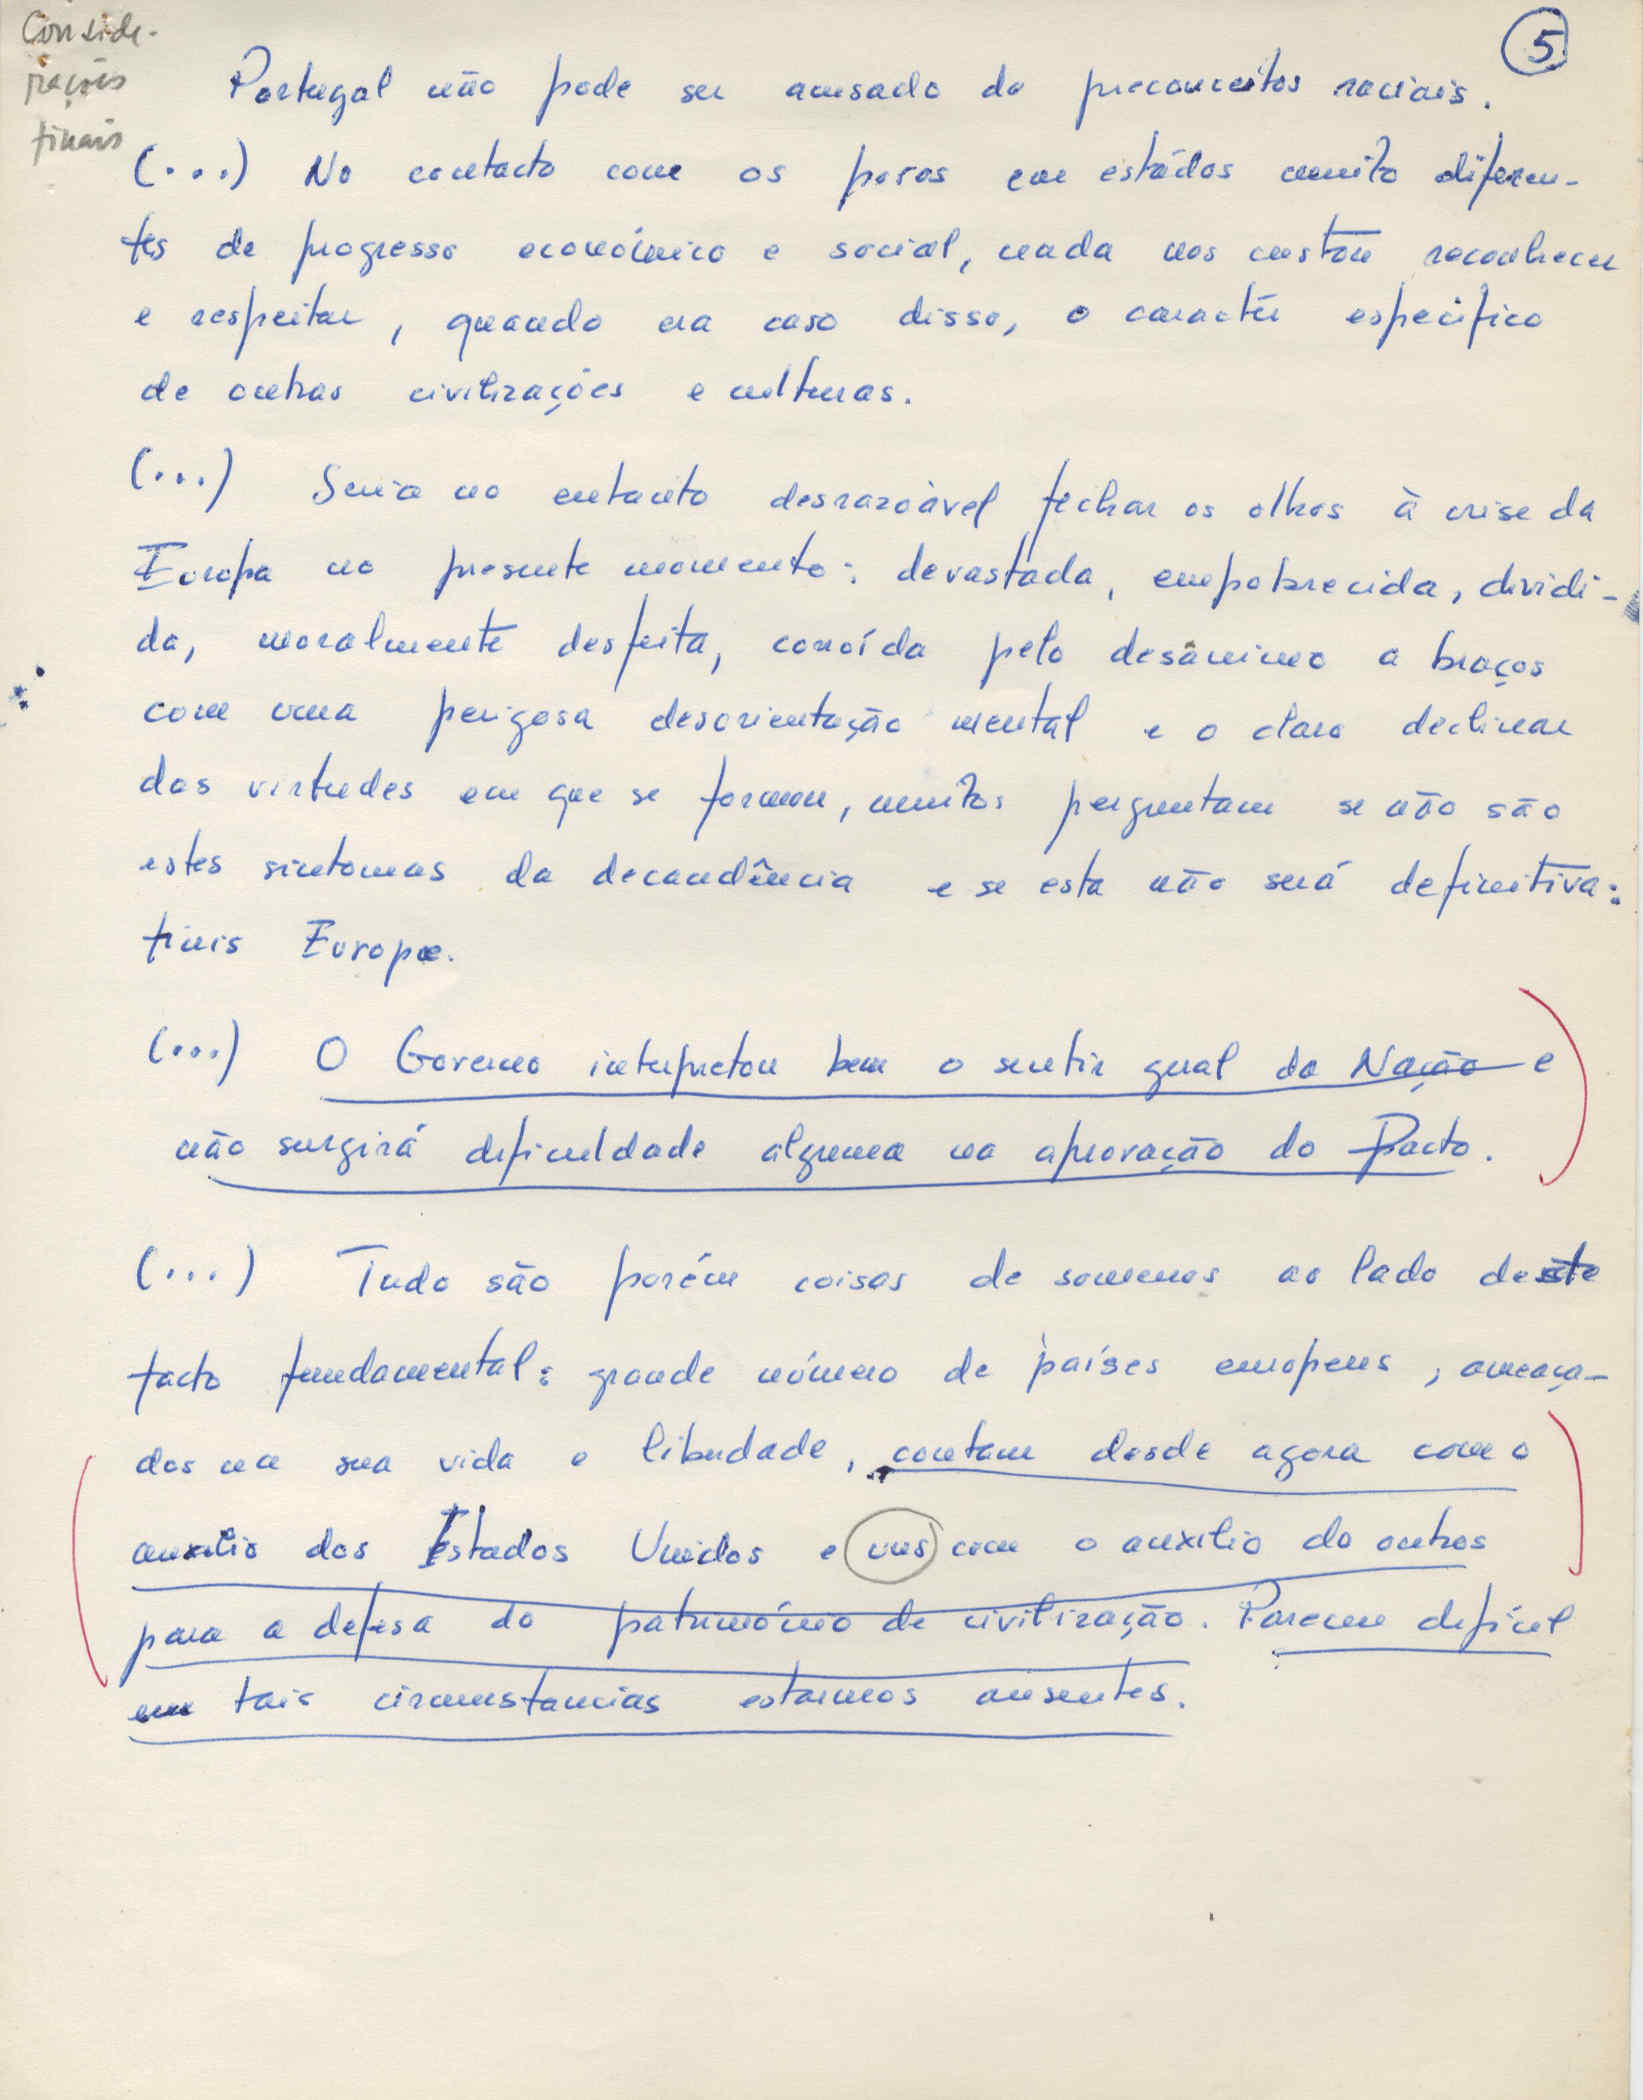 Conside-
rações
finais
5
Portugal não pode ser acusado de preconceitos raciais.
(...) No contacto com os povos em estádos muito diferen-
tes de progresso económico e social, nada nos custou reconhecer
e respeitar, quando era caso disso, o caractér especifico
de outras civilizações e culturas.
(...) Seria no entanto desrazoável fechar os olhos à crise da
Europa no presente momento: devastada, empobrecida, dividi-
da, moralmente desfeita, corroída pelo desânimo a braços
com uma perigosa desorientação mental e o claro declinar
das virtudes em que se formou, muitos perguntam se não são
estes sintomas da decandência e se esta não será definitiva:
finis Europæ.
(...) O Governo interpretou bem o sentir geral da Nação e
não surgirá dificuldade alguma na aprovação do Pacto.
(...) Tudo são porém coisas de somenos ao lado deste
facto fundamental: grande número de países europeus, ameaça-
dos na sua vida e liberdade, contam desde agora com o
auxilio dos Estados Unidos e uns com o auxilio do outros
para a defesa do património de civilização. Pareceu dificil
em tais circunstancias estarmos ausentes.